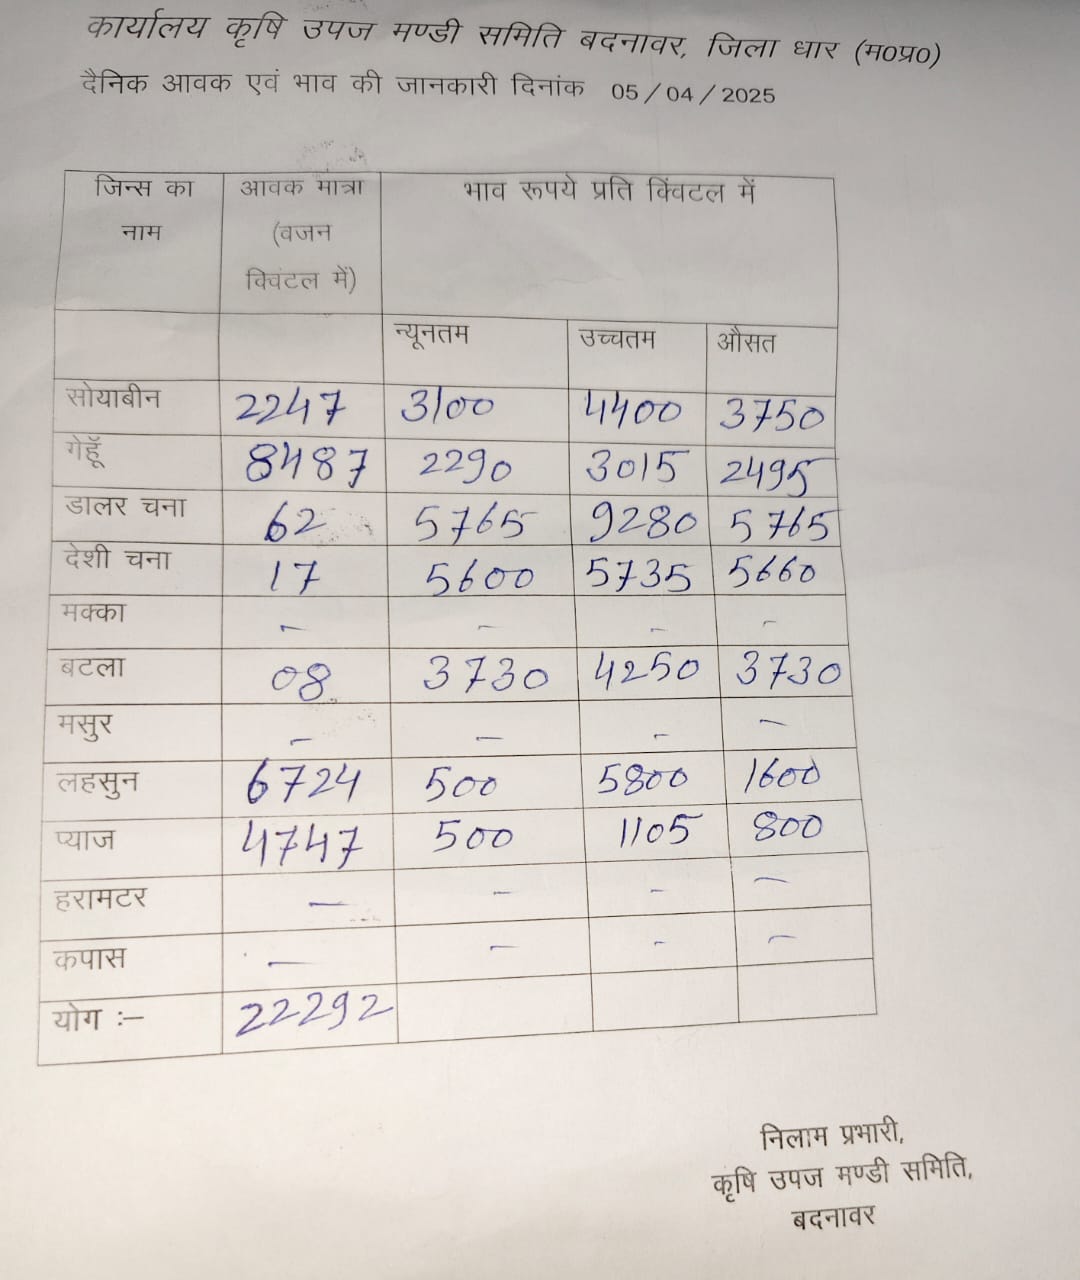 कार्यालय कृषि उपज मण्डी समिति बदनावर, जिला धार (म०प्र०)
दैनिक आवक एवं भाव की जानकारी दिनांक 05/04/2025
जिन्स का नाम आवक मात्रा (वजन क्विंटल में) भाव रूपये प्रति क्विंटल में
न्यूनतम उच्चतम औसत
सोयाबीन 2247 3100 4400 3750
गेहूँ 8487 2290 3015 2495
डालर चना 62 5765 9280 5765
देशी चना 17 5600 5735 5660
मक्का - - - -
बटला 08 3730 4250 3730
मसुर - - - -
लहसुन 6724 500 5800 1600
प्याज 4747 500 1105 800
हरामटर - - - -
कपास - - - -
योग :- 22292
निलाम प्रभारी,
कृषि उपज मण्डी समिति,
बदनावर